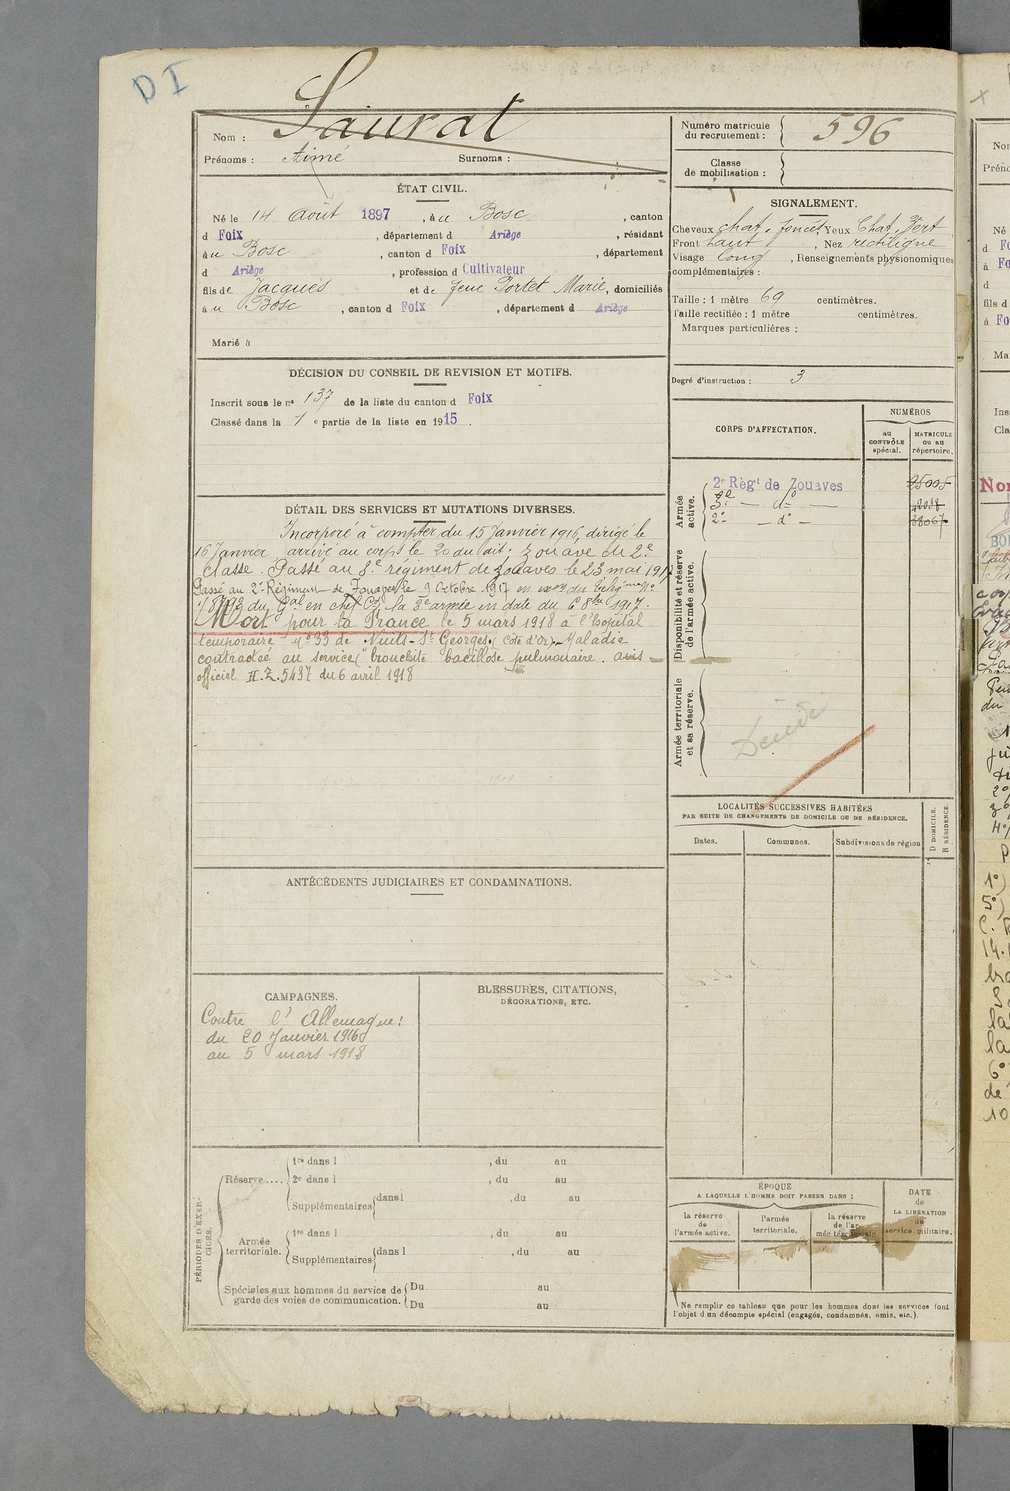 D I
Saurat
Nom :
Prénoms : Aimé Surnoms :
Numéro matricule du recrutement : 596
Classe de mobilisation :
ÉTAT CIVIL.
Né le 14 Août 1897, à u Bosc, canton
d Foix, département d Ariège, résidant
à u Bosc, canton d Foix, département
d Ariège, profession d Cultivateur
fils de Jacques et de feue Portet Marie, domiciliés
à u Bosc, canton d Foix, département d Ariège
Marié à
SIGNALEMENT.
Cheveux chat. foncé Yeux Chat. Vert
Front haut, Nez rectiligne
Visage long, Renseignements physionomiques
complémentaires :
Taille : 1 mètre 69 centimètres.
Taille rectifiée : 1 mètre centimètres.
Marques particulières :
Degré d'instruction : 3
DÉCISION DU CONSEIL DE REVISION ET MOTIFS.
Inscrit sous le nº 137 de la liste du canton d Foix
Classé dans la 1 e partie de la liste en 1915.
CORPS D'AFFECTATION.
NUMÉROS
au CONTRÔLE spécial.
MATRICULE ou au répertoire.
Armée active.
2e Régt de Zouaves 25005
8e — dº —
2e — dº —
Disponibilité et réserve de l'armée active.
Armée territoriale et sa réserve.
Décédé
DÉTAIL DES SERVICES ET MUTATIONS DIVERSES.
Incorporé à compter du 15 Janvier 1916, dirigé le
16 Janvier arrivé au corps le 20 du fait : zouave de 2e
classe. Passé au 8e régiment de zouaves le 23 mai 1917
Passé au 2e Régiment de Zouaves le 9 Octobre 1917 du Nº
du Gal en chef la 3e armée en date du 6 8bre 1917.
Mort pour la France le 5 mars 1918 à l'hôpital
temporaire nº 33 de Nuits-St Georges (Côte d'Or) Maladie
contractée au service, bronchite bacillose pulmonaire. avis
officiel H.Z.5437 du 6 avril 1918
LOCALITÉS SUCCESSIVES HABITÉES
PAR SUITE DE CHANGEMENTS DE DOMICILE OU DE RÉSIDENCE.
Dates. Communes. Subdivisions de région
D DOMICILE.
R RÉSIDENCE.
ANTÉCÉDENTS JUDICIAIRES ET CONDAMNATIONS.
CAMPAGNES.
Contre l' Allemagne :
du 20 Janvier 1916
au 5 mars 1918
BLESSURES, CITATIONS,
DÉCORATIONS, ETC.
PÉRIODES D'EXERCICES.
Réserve....
1re dans l , du au
2e dans l , du au
Supplémentaires dans l , du au
Armée territoriale.
1re dans l , du au
Supplémentaires dans l , du au
Spéciales aux hommes du service de garde des voies de communication.
Du au
Du au
ÉPOQUE
A LAQUELLE L'HOMME DOIT PASSER DANS :
la réserve de l'armée active.
l'armée territoriale.
la réserve de l'armée territoriale
DATE de LA LIBÉRATION du service militaire.
Ne remplir ce tableau que pour les hommes dont les services font
l'objet d'un décompte spécial (engagés, condamnés, omis, etc.).